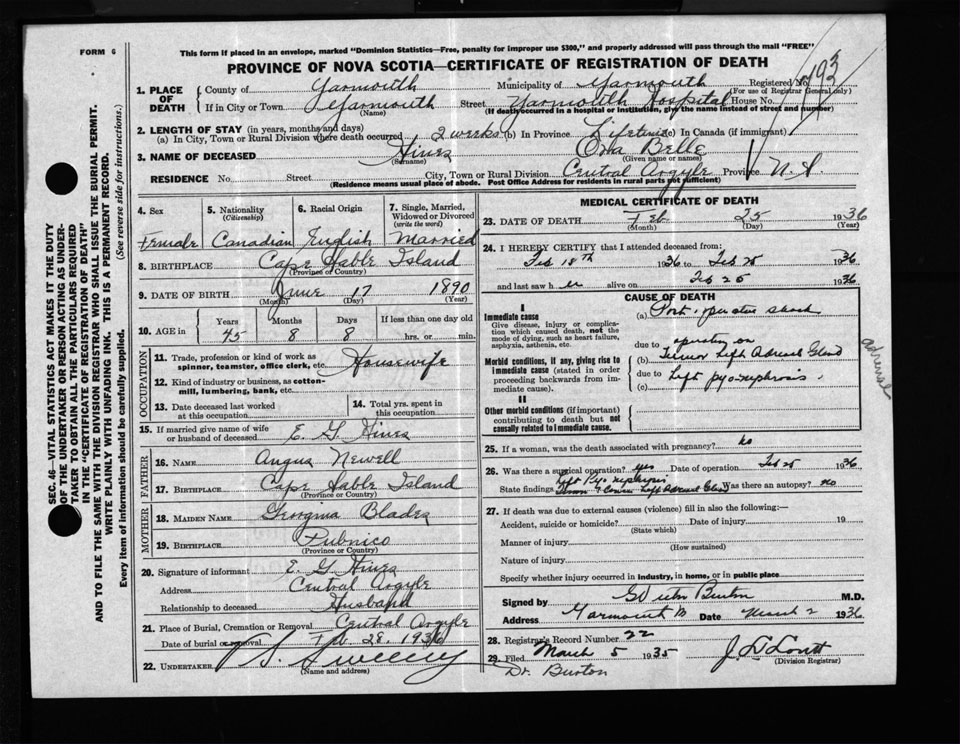 FORM 6
This form if placed in an envelope, marked "Dominion Statistics—Free, penalty for improper use $300," and properly addressed will pass through the mail "FREE"
PROVINCE OF NOVA SCOTIA—CERTIFICATE OF REGISTRATION OF DEATH
SEC. 46—VITAL STATISTICS ACT MAKES IT THE DUTY
OF THE UNDERTAKER OR PERSON ACTING AS UNDER-
TAKER TO OBTAIN ALL THE PARTICULARS REQUIRED
IN THE "CERTIFICATE OF REGISTRATION OF DEATH"
AND TO FILE THE SAME WITH THE DIVISION REGISTRAR WHO SHALL ISSUE THE BURIAL PERMIT.
WRITE PLAINLY WITH UNFADING INK. THIS IS A PERMANENT RECORD.
Every item of information should be carefully supplied. (See reverse side for instructions.)
1. PLACE OF DEATH County of Yarmouth Municipality of Yarmouth Registered No. 793
(For use of Registrar General only)
If in City or Town Yarmouth Street Yarmouth Hospital House No.
(Name) (If death occurred in a hospital or institution, give the name instead of street and number)
2. LENGTH OF STAY (in years, months and days)
(a) In City, Town or Rural Division where death occurred 2 weeks (b) In Province Lifetime (c) In Canada (if immigrant)
3. NAME OF DECEASED Hines Ora Belle
(Surname) (Given name or names)
RESIDENCE No. Street City, Town or Rural Division Central Argyle Province N.S.
(Residence means usual place of abode. Post Office Address for residents in rural parts not sufficient)
4. Sex 5. Nationality (Citizenship) 6. Racial Origin 7. Single, Married, Widowed or Divorced (write the word)
Female Canadian English Married
8. BIRTHPLACE Cape Sable Island
(Province or Country)
9. DATE OF BIRTH June 17 1890
(Month) (Day) (Year)
10. AGE in Years Months Days If less than one day old
45 8 8 hrs. or min.
OCCUPATION
11. Trade, profession or kind of work as spinner, teamster, office clerk, etc. Housewife
12. Kind of industry or business, as cotton-mill, lumbering, bank, etc.
13. Date deceased last worked at this occupation 14. Total yrs. spent in this occupation
15. If married give name of wife or husband of deceased E. G. Hines
FATHER
16. NAME Angus Newell
17. BIRTHPLACE Cape Sable Island
(Province or Country)
MOTHER
18. MAIDEN NAME Georgina Blades
19. BIRTHPLACE Pubnico
(Province or Country)
20. Signature of informant E. G. Hines
Address Central Argyle
Relationship to deceased Husband
21. Place of Burial, Cremation or Removal Central Argyle
Date of burial or removal Feb 28, 1936
22. UNDERTAKER Sweeny
(Name and address)
MEDICAL CERTIFICATE OF DEATH
23. DATE OF DEATH Feb 25 1936
(Month) (Day) (Year)
24. I HEREBY CERTIFY that I attended deceased from:
Feb 18th 1936 to Feb 25 1936
and last saw her alive on Feb 25 1936
CAUSE OF DEATH
I
Immediate cause
Give disease, injury or complication which caused death, not the mode of dying, such as heart failure, asphyxia, asthenia, etc.
(a) Post-operative shock
due to operation on
Morbid conditions, if any, giving rise to immediate cause (stated in order proceeding backwards from immediate cause).
(b) Tumor Left Adrenal Gland
adrenal
due to Left pyonephrosis.
(c)
II
Other morbid conditions (if important) contributing to death but not causally related to immediate cause.
25. If a woman, was the death associated with pregnancy? no
26. Was there a surgical operation? yes Date of operation Feb 25 1936
State findings Left Pyonephrosis Left Adrenal Gland Was there an autopsy? no
27. If death was due to external causes (violence) fill in also the following:—
Accident, suicide or homicide? Date of injury 19
(State which)
Manner of injury
(How sustained)
Nature of injury
Specify whether injury occurred in industry, in home, or in public place
Signed by Burton M.D.
Address Yarmouth Date March 2 1936
28. Registrar's Record Number 22
29. Filed March 5 1935
(Division Registrar)
Dr. Burton